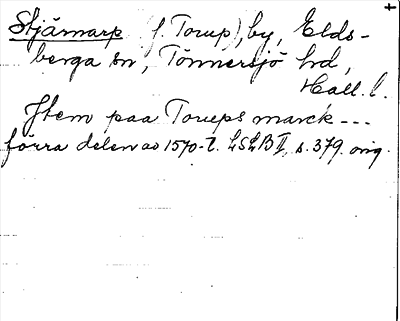 Stjärnarp (f. Torup), by, Elds-
berga sn, Tönnersjö hd,
Hall. l.
Jtem paa Torups marck ---
förra delen av 1570-t. LSLB II, s. 379. orig.